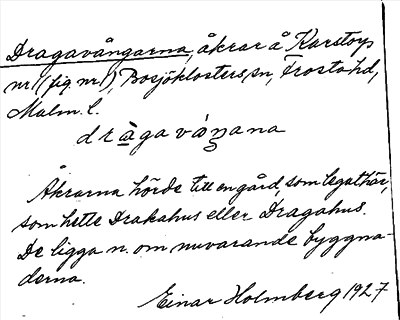 Dragavångarna, åkrar å Karstorp
nr 1 (fig nr 1), Bosjöklosters sn, Frosta hd,
Malm. l.
dràgaváŋana
Åkrarna hörde till en gård, som legat här,
som hette Drakahus eller Dragahus.
De ligga n. om nuvarande byggna-
derna.
Einar Holmberg 1927